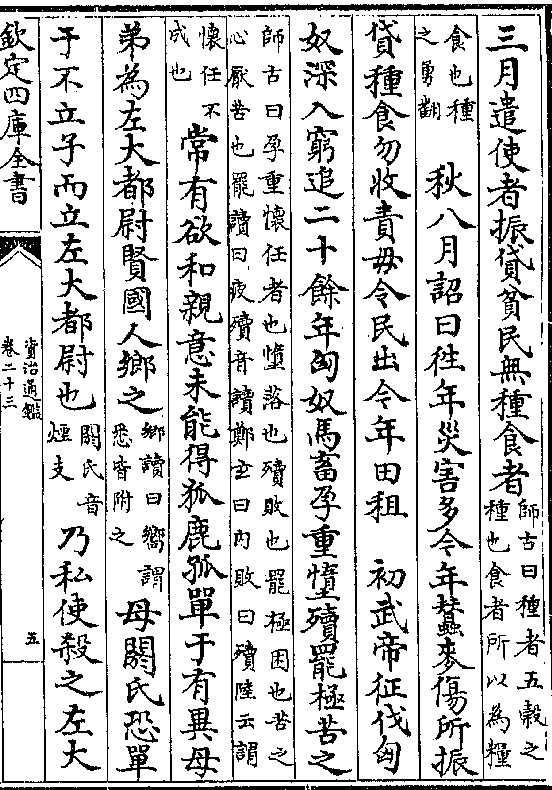 三月遣使者振貸貧民無種食者師古曰種者五穀之
種也食者所以為糧
食也種
之勇翻
秋八月詔曰徃年災害多今年蠶麥傷所振
貸種食勿收責毋令民出今年田租　初武帝征伐匈
奴深入窮追二十餘年匈奴馬畜孕重墮殰罷極苦之
師古曰孕重懷任者也墮落也殰敗也罷極困也苦之
心厭苦也罷讀曰疲殰音讀鄭玄曰内敗曰殰陸云謂
懷任不
成也
常有欲和親意未能得狐鹿孤單于有異母
弟為左大都尉賢國人鄉之
鄉讀曰嚮謂
悉皆附之
母閼氏恐單
于不立子而立左大都尉也
閼氏音
煙支
乃私使殺之左大
欽定四庫全書
資治通鑑
卷二十三
五